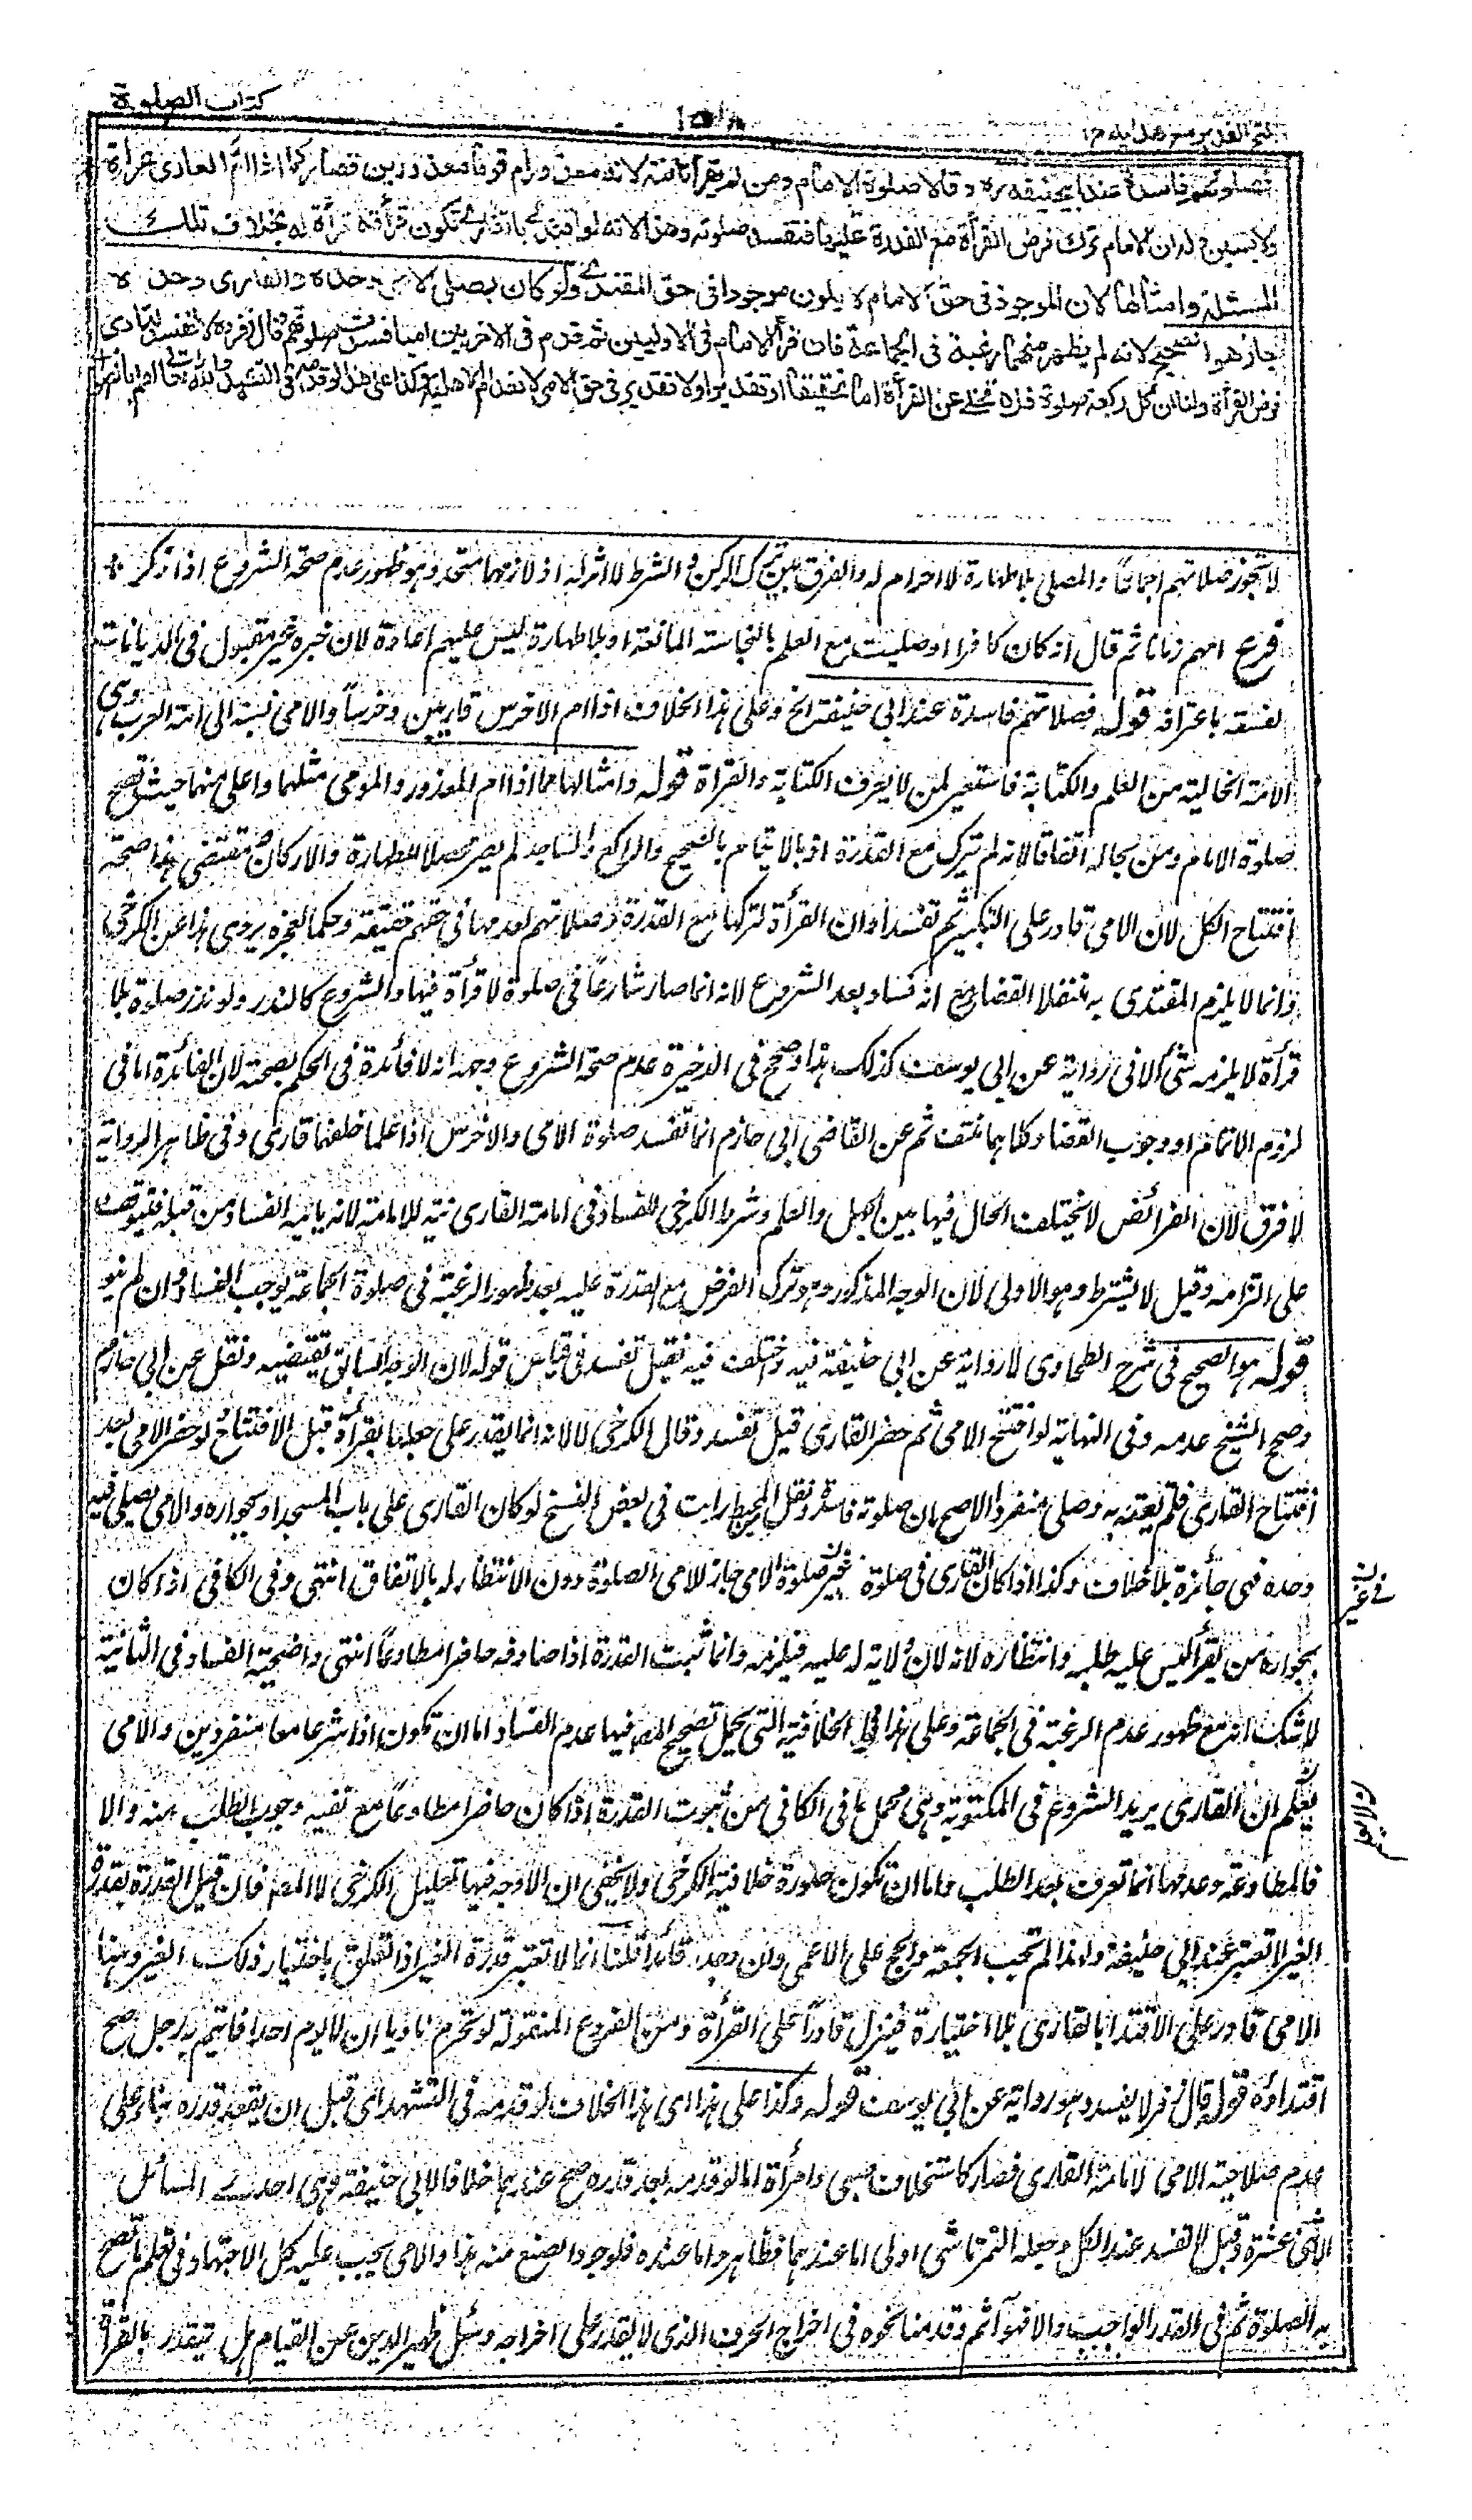 فتح القدير مع هدايه ج١
١٥٨
كتاب الصلوة
فصلوتهم فاسدة عند ابيحنيفه ره وقالا صلوة الامام ومن لم يقرأ تامة لانه معذور ام قوما معذورين فصار كما اذا ام العارى عراة
ولابسين وله ان الامام ترك فرض القرأة مع القدرة عليها فتفسد صلوته وهذا لانه لو اقتدى بالقارى تكون قرأته قرأة له بخلاف تلك
المسئلة وامثالها لان الموجود فى حق الامام لا يكون موجودا فى حق المقتدى ولو كان يصلى الامى وحده والقارى وحده
جاز هو الصحيح لانه لم يظهر منهما رغبة فى الجماعة فان قرأ الامام فى الاوليين ثم قدم فى الاخريين اميا فسدت صلوتهم وقال زفر ره لا تفسد لتأدى
فرض القرأة ولنا ان كل ركعة صلوة فلا تخلى عن القرأة اما تحقيقا او تقديرا ولا تقدير فى حق الامى لانعدام الاهلية وكذا على هذا لو قدمه فى التشهد والله تعالى اعلم بالصواب
لا تجوز صلاتهم اجماعا والمصلى بلا طهارة لا احرام له والفرق بين ترك الركن و الشرط لا اثر له اذ لازمهما متحد وهو ظهور عدم صحة الشروع اذا ذكر
فرع امهم زمانا ثم قال انه كان كافرا او صليت مع العلم بالنجاسة المانعة او بلا طهارة ليس عليهم اعادة لان خبره غير مقبول فى الديانات
لفسقه باعترافه قوله فصلاتهم فاسدة عند ابى حنيفة الخ وعلى هذا الخلاف اذا ام الاخرس قاريين وخرسا والامى نسبة الى امة العرب وهى
الامة الخالية من العلم والكتابة فاستعير لمن لا يعرف الكتابة والقرأة قوله وامثالها مما اذا ام المعذور والمومى مثلهما واعلى منهما حيث تصح
صلوة الامام ومن بحاله اتفاقا لانه لم يترك مع القدرة اذ بالايتمام بالصحيح والراكع والساجد لم يصر محصلا للطهارة والاركان ومقتضى هذا صحة
افتتاح الكل لان الامى قادر على التكبير ثم تفسد اوان القرأة لتركها مع القدرة وصلاتهم لعدمها فى حقهم حقيقة وحكما لعجزه يروى هذا عن الكرخى
وانما لا يلزم المقتدى به متنفلا القضاء مع انه فساد بعد الشروع لانه انما صار شارعا فى صلوة لا قرأة فيها والشروع كالنذر ولو نذر صلوة بلا
قرأة لا يلزمه شئ الا فى رواية عن ابى يوسف كذلك هذا وصحح فى الذخيرة عدم صحة الشروع وجهه انه لا فائدة فى الحكم بصحته لان الفائدة اما فى
لزوم الاتمام او وجوب القضاء وكلاهما منتف ثم عن القاضى ابى حازم انما تفسد صلوة الامى والاخرس اذا علما خلفهما قارى وفى ظاهر الرواية
لا فرق لان الفرائض لا تختلف الحال فيها بين الجهل والعلم وشرط الكرخى للفساد فى امامة القارى نية للامامة لانه يأتيه الفساد من قبله فيتوقف
على التزامه وقيل لا يشترط وهو الاولى لان الوجه المذكور وهو ترك الفرض مع القدرة عليه بعد ظهور الرغبة فى صلوة الجماعة يوجب الفساد وان لم ينو
قوله هو الصحيح فى شرح الطحاوى لا رواية عن ابى حنيفة فيه واختلف فيه فقيل تفسد فى قياس قوله لان الوجه السابق يقتضيه ونقل عن ابى حازم
وصحح الشيخ عدمه وفى النهاية لو افتتح الامى ثم حضر القارى قيل تفسد وقال الكرخى لا لانه انما يقدر على جعلها بقرأة قبل الافتتاح ولو حضر الامى بعد
افتتاح القارى فلم يقتد به وصلى منفردا الاصح ان صلوته فاسدة ونقل المحيط رايت فى بعض النسخ لو كان القارى على باب المسجد او بجواره والامى يصلى فيه
وحده فهى جائزة بلا خلاف وكذا اذا كان القارى فى صلوة غير صلوة الامى جاز للامى الصلوة دون الانتظار له بالاتفاق انتهى وفى الكافى اذا كان
بجواره من يقرأ ليس عليه طلبه وانتظاره لانه لا ولاية له عليه فيلزمه وانما ثبت القدرة اذا صادفه حاضرا مطاوعا انتهى واضحية الفساد فى الثانية
لا شك انه مع ظهور عدم الرغبة فى الجماعة وعلى هذا فى الخلافية التى يحمل تصحيح المص فيها عدم الفساد اما ان تكون اذا شرعا معا منفردين والامى
يعلم ان القارى يريد الشروع فى المكتوبة وهى محمل ما فى الكافى من ثبوت القدرة اذا كان حاضرا مطاوعا مع نفيه وجوب الطلب منه والا
فالمطاوعة وعدمها انما تعرف بعد الطلب واما ان تكون صورة خلافية الكرخى ولا يخفى ان الاوجه فيها تعليل الكرخى لا المص فان قيل القدرة بقدرة
الغير لا تعتبر عند ابى حنيفة ولذا لم تجب الجمعة والحج على الاعمى وان وجد قائدا قلنا انما لا تعتبر قدرة الغير اذا تعلق باختيار ذلك الغير وهنا
الامى قادر على الاقتداء بالقارى بلا اختياره فينزل قادرا على القرأة ومن الفروع المنقولة لو تحرم ناويا ان لا يؤم احدا فائتم به رجل صح
اقتداؤه قوله قال زفر لا يفسد وهو رواية عن ابى يوسف قوله وكذا على هذا اى هذا الخلاف لو قدمه فى التشهد اى قبل ان يقعد قدره بناء على
عدم صلاحية الامى لامامة القارى فصار كاستخلاف صبى وامرأة اما لو قدمه بعد قدره صح عندهما خلافا لابى حنيفة وهى احدى المسائل
الاثنى عشرة وقيل لا تفسد عند الكل وجعله التمرتاشى اولى اما عندهما فظاهر واما عنده فلوجود الصنع منه هذا والامى يجب عليه كل الاجتهاد فى تعلم ما تصح
به الصلوة ثم فى القدر الواجب والا فهو آثم وقدمنا نحوه فى اخراج الحرف الذى لا يقدر على اخراجه وسئل ظهير الدين عن القيام هل يتقدر بالقرأة